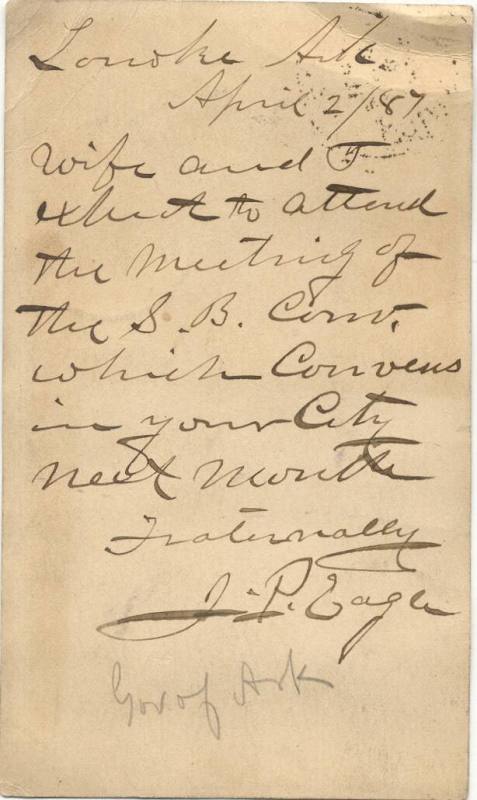 Lonoke Ark
April 2/87
Wife and I
expect to attend
the meeting of
the S. B. Conv.
which Convens
in your City
next Month
Fraternally
J. P. Eagle
Gov of Ark